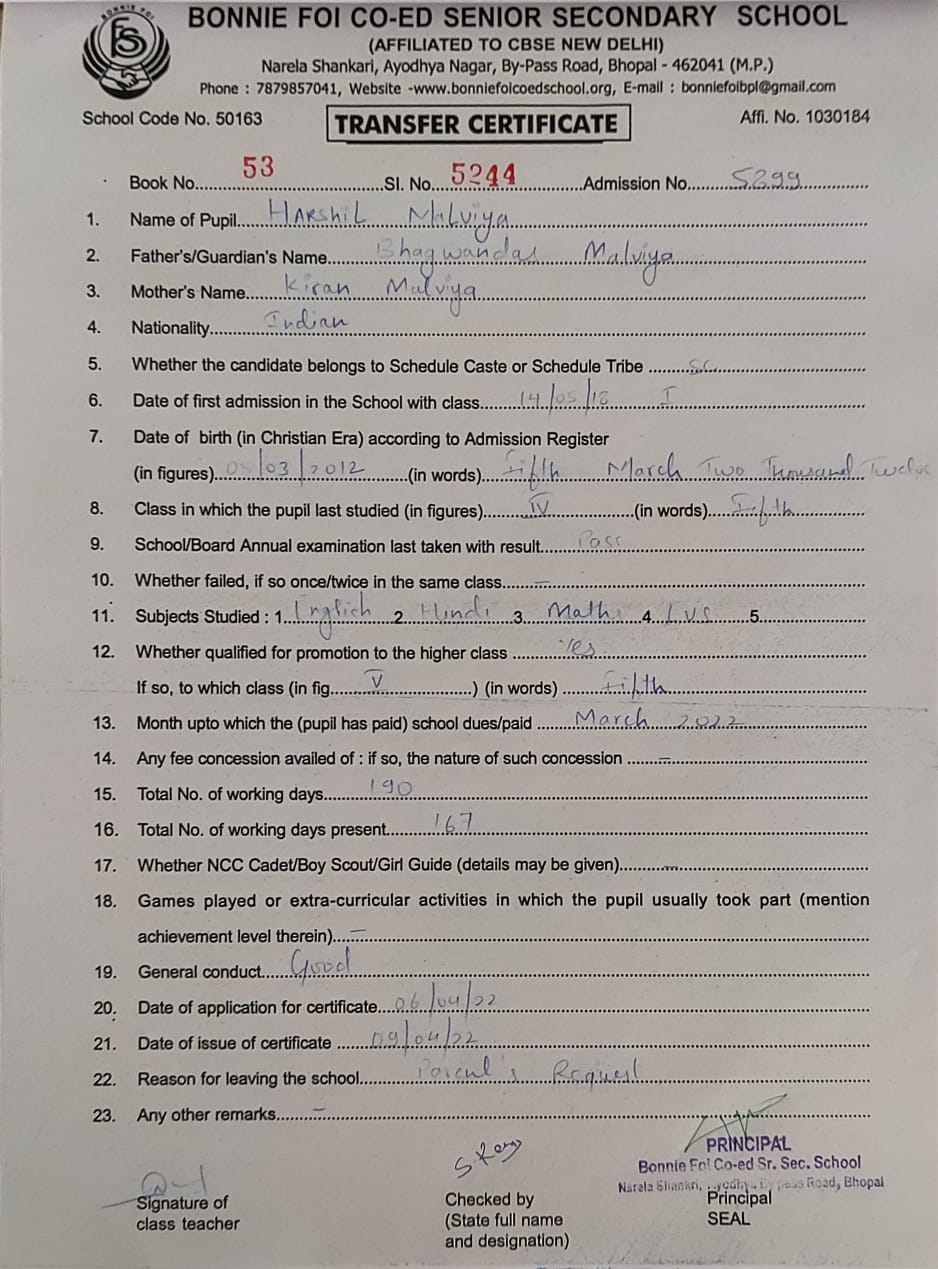 BONNIE FOI
FS
BONNIE FOI CO-ED SENIOR SECONDARY SCHOOL
(AFFILIATED TO CBSE NEW DELHI)
Narela Shankari, Ayodhya Nagar, By-Pass Road, Bhopal - 462041 (M.P.)
Phone : 7879857041, Website -www.bonniefoicoedschool.org, E-mail : bonniefoibpl@gmail.com
School Code No. 50163 TRANSFER CERTIFICATE Affi. No. 1030184
Book No. 53 Sl. No. 5244 Admission No. 5299
1. Name of Pupil Harshil Malviya
2. Father's/Guardian's Name Bhagwandas Malviya
3. Mother's Name Kiran Malviya
4. Nationality Indian
5. Whether the candidate belongs to Schedule Caste or Schedule Tribe SC
6. Date of first admission in the School with class 14/05/18 I
7. Date of birth (in Christian Era) according to Admission Register
(in figures) 05/03/2012 (in words) Fifth March Two Thousand Twelve
8. Class in which the pupil last studied (in figures) IV (in words) Fifth
9. School/Board Annual examination last taken with result Pass
10. Whether failed, if so once/twice in the same class –
11. Subjects Studied : 1 English 2 Hindi 3 Maths 4 E.V.S 5
12. Whether qualified for promotion to the higher class Yes
If so, to which class (in fig. V ) (in words) Fifth
13. Month upto which the (pupil has paid) school dues/paid March 2022
14. Any fee concession availed of : if so, the nature of such concession –
15. Total No. of working days 190
16. Total No. of working days present 167
17. Whether NCC Cadet/Boy Scout/Girl Guide (details may be given) –
18. Games played or extra-curricular activities in which the pupil usually took part (mention
achievement level therein) –
19. General conduct Good
20. Date of application for certificate 06/04/22
21. Date of issue of certificate 09/04/22
22. Reason for leaving the school Parent's Request
23. Any other remarks –
PRINCIPAL
Bonnie Foi Co-ed Sr. Sec. School
Narela Shankri, Ayodhya Bypass Road, Bhopal
Signature of
class teacher
Checked by
(State full name
and designation)
Principal
SEAL